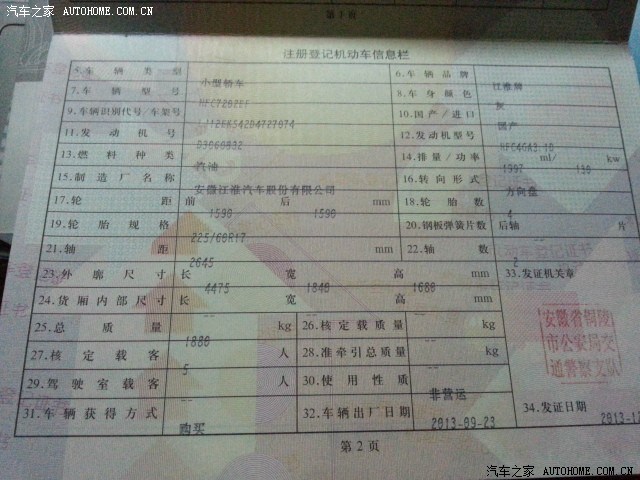 汽车之家 AUTOHOME.COM.CN
第1页
注册登记机动车信息栏
5.车辆类型 小型轿车 6.车辆品牌 江淮牌
7.车辆型号 8.车身颜色 灰
9.车辆识别代号/车架号 10.国产/进口 国产
11.发动机号 12.发动机型号
13.燃料种类 汽油 14.排量/功率 1997 ml/ kw
15.制造厂名称 安徽江淮汽车股份有限公司 16.转向形式 方向盘
17.轮距 前 1590 后 1590 mm 18.轮胎数 4
19.轮胎规格 225/60R17 20.钢板弹簧片数 后轴 片
21.轴距 2645 mm 22.轴数 2
23.外廓尺寸 长 4475 宽 1840 高 1680 mm 33.发证机关章
24.货厢内部尺寸 长 -- 宽 -- 高 -- mm
安徽省铜陵
市公安局交
通警察支队
25.总质量 1880 kg 26.核定载质量 -- kg
27.核定载客 5 人 28.准牵引总质量 -- kg
29.驾驶室载客 -- 人 30.使用性质 非营运
31.车辆获得方式 购买 32.车辆出厂日期 2013-09-23 34.发证日期 2013-1
第2页
汽车之家 AUTOHOME.COM.CN